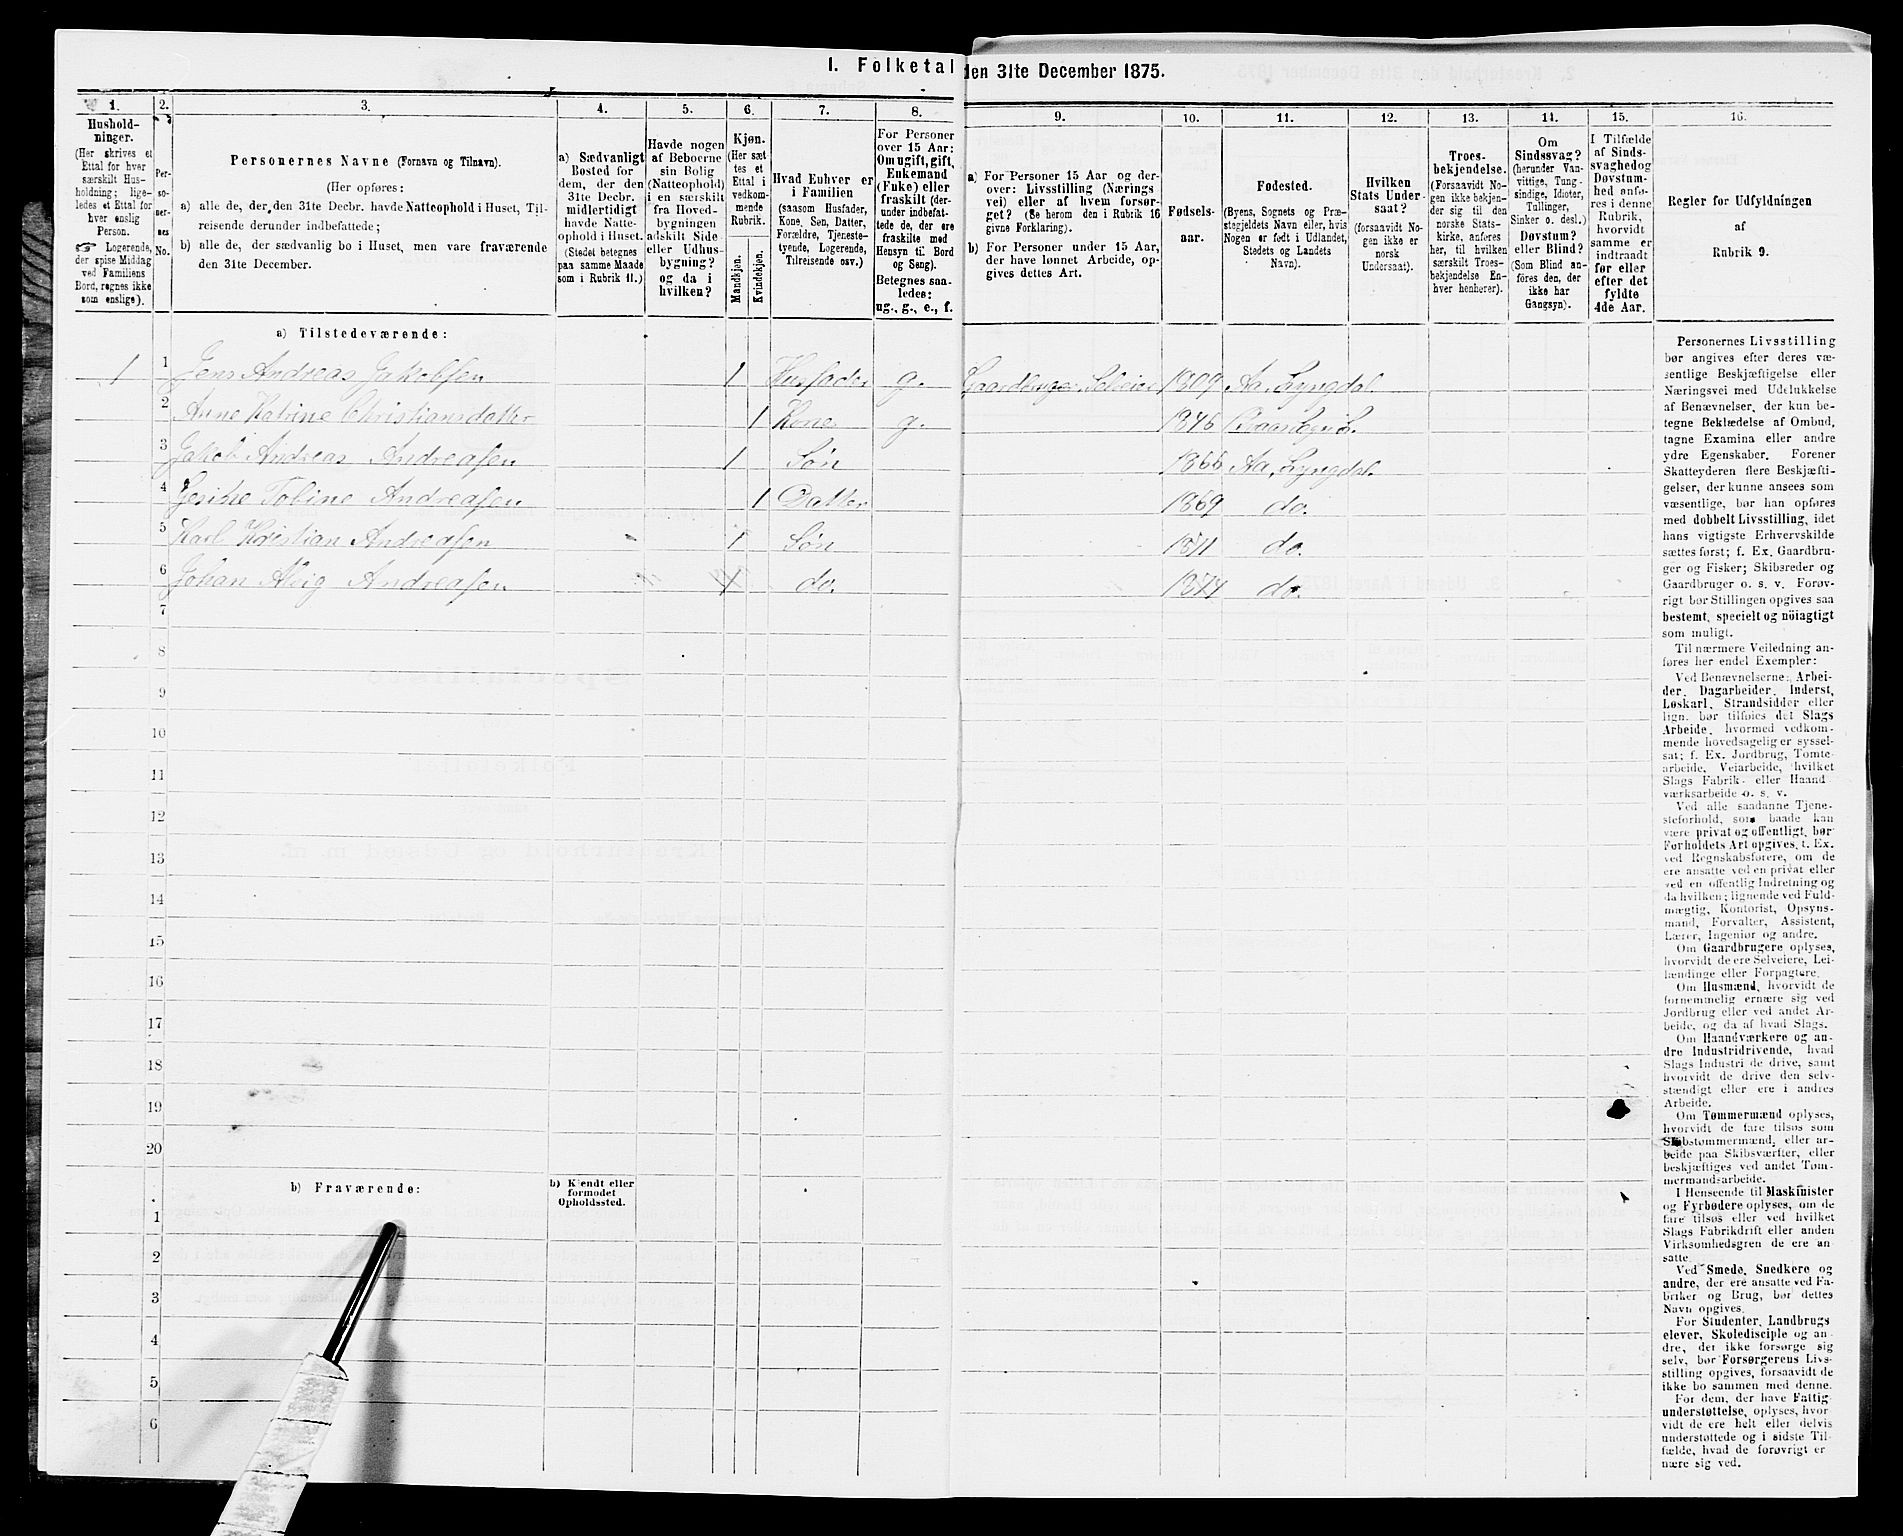 I. Folketal den 31te December 1875.
1. 2. 3. 4. 5. 6. 7. 8. 9. 10. 11. 12. 13. 14. 15. 16.
Hushold-
ninger.
(Her skrives et
Ettal for hver
særskilt Hus-
holdning; lige-
ledes et Ettal for
hver enslig
Person.
Logerende,
der spise Middag
ved Familiens
Bord, regnes ikke
som enslige).
Per-
so-
ner-
nes
No.
Personernes Navne (Fornavn og Tilnavn).
(Her opføres:
a) alle de, der den 31te Decbr. havde Natteophold i Huset, Til-
reisende derunder indbefattede;
b) alle de, der sædvanlig bo i Huset, men vare fraværende
den 31te December.
a) Sædvanligt
Bosted for
dem, der den
31te Decbr.
midlertidigt
havde Natte-
ophold i Huset.
(Stedet betegnes
paa samme Maade
som i Rubrik 11.)
Havde nogen
af Beboerne
sin Bolig
(Natteophold)
i en særskilt
fra Hoved-
bygningen
adskilt Side-
eller Udhus-
bygning?
og da i
hvilken?
Kjøn.
(Her sæt
tes et
Ettal i
vedkom-
mende
Rubrik.
Mandkjøn.
Kvindekjøn.
Hvad Enhver er
i Familien
(saasom Husfader,
Kone, Søn, Datter,
Forældre, Tjeneste-
tyende, Logerende,
Tilreisende osv.)
For Personer
over 15 Aar:
Om ugift, gift,
Enkemand
(Enke) eller
fraskilt (der-
under indbefat-
tede de, der ere
fraskilte med
Hensyn til Bord
og Seng).
Betegnes saa-
ledes:
ug., g., e., f.
a) For Personer 15 Aar og der-
over: Livsstilling (Nærings
vei) eller af hvem forsør-
get? (Se herom den i Rubrik 16
givne Forklaring).
b) For Personer under 15 Aar,
der have lønnet Arbeide, op-
gives dettes Art.
Fødsels-
aar.
Fødested.
(Byens, Sognets og Præ-
stegjeldets Navn eller, hvis
Nogen er født i Udlandet,
Stedets og Landets
Navn).
Hvilken
Stats Under-
saat?
(forsaavidt No-
gen ikke er
norsk
Undersaat).
Troes-
bekjendelse.
(Forsaavidt No-
gen ikke bekjen-
der sig til den
norske Stats-
kirke, anføres
her, til hvilken
særskilt Troes-
bekjendelse En-
hver henhører).
Om
Sindssvag?
(herunder Van-
vittige, Tung-
sindige, Idioter,
Tullinger,
Sinker o. desl.)
Døvstum?
eller Blind?
(Som Blind an-
føres den, der
ikke har
Gangsyn).
I Tilfælde
af Sinds-
svaghed og
Døvstum-
hed anfø-
res i denne
Rubrik,
hvorvidt
samme er
indtraadt
før eller
efter det
fyldte
4de Aar.
Regler for Udfyldningen
af
Rubrik 9.
a) Tilstedeværende:
1 1 Jens Andreas Jakobsen 1 Husfader g. Gaardbruger, Selveier 1809 Aa, Lyngdal
2 Anne Katrine Christiansdatter 1 Kone g. 1846
3 Jakob Andreas Andreasen 1 Søn 1866 Aa, Lyngdal
4 Tobine Andreasen 1 Datter 1869 do.
5 Karl Kristian Andreasen 1 Søn 1871 do.
6 Johan Andreasen 1 do. 1874 do.
7
8
9
10
11
12
13
14
15
16
17
18
19
20
b) Fraværende:
b) Kjendt eller
formodet
Opholdssted.
1
2
3
4
5
6
Personernes Livsstilling
bør angives efter deres væ-
sentlige Beskjæftigelse eller
Næringsvei med Udelukkelse
af Benævnelser, der kun be-
tegne Beklædelse af Ombud,
tagne Examina eller andre
ydre Egenskaber. Forener
Skatteyderen flere Beskjæfti-
gelser, der kunne ansees som
væsentlige, bør han opføres
med dobbelt Livsstilling, idet
hans vigtigste Erhvervskilde
sættes først; f. Ex. Gaardbru-
ger og Fisker; Skibsreder og
Gaardbruger o. s. v. Forøv-
rigt bør Stillingen opgives saa
bestemt, specielt og nöiagtigt
som muligt.
Til nærmere Veiledning an-
føres her endel Exempler:
Ved Benævnelserne: Arbei-
der, Dagarbeider, Inderst,
Løskarl, Strandsidder eller
lign. bør tilføies det Slags
Arbeide, hvormed vedkom-
mende hovedsagelig er syssel-
sat; f. Ex. Jordbrug, Tomte-
arbeide, Veiarbeide, hvilket
Slags Fabrik- eller Haand
værksarbeide o. s. v.
Ved alle saadanne Tjene-
steforhold, som baade kan
være privat og offentligt, bør
Forholdets Art opgives, f. Ex.
ved Regnskabsførere, om de
ere ansatte ved en privat eller
ved en offentlig Indretning og
da hvilken; lignende ved Fuld-
mægtig, Kontorist, Opsyns-
mand, Forvalter, Assistent,
Lærer, Ingeniør og andre.
Om Gaardbrugere oplyses,
hvorvidt de ere Selveiere, Lei-
lændinge eller Forpagtere.
Om Husmænd, hvorvidt de
fornemmelig ernære sig ved
Jordbrug eller ved andet Ar-
beide, og da af hvad Slags.
Om Haandværkere og an-
dre Industridrivende, hvad
Slags Industri de drive, samt
hvorvidt de drive den selv-
stændigt eller ere i andres
Arbeide.
Om Tømmermænd oplyses,
hvorvidt de fare tilsøs som
Skibstømmermænd, eller ar-
beide paa Skibsværfter, eller
beskjæftiges ved andet Tøm-
mermandsarbeide.
I Henseende til Maskinister
og Fyrbødere oplyses, om de
fare tilsøs eller ved hvilket
Slags Fabrikdrift eller anden
Virksomhedsgren de ere an-
satte.
Ved Smede, Snedkere og
andre, der ere ansatte ved Fa-
briker og Brug, bør dettes
Navn opgives.
For Studenter, Landbrugs
elever, Skoledisciple og an-
dre, der ikke forsørge sig
selv, bør Forsørgerens Livs-
stilling opgives, forsaavidt de
ikke bo sammen med denne.
For dem, der have Fattig-
understøttelse, oplyses, hvor
vidt de ere helt eller delvis
understøttede og i sidste Til-
fælde, hvad de forøvrigt er
nære sig ved.